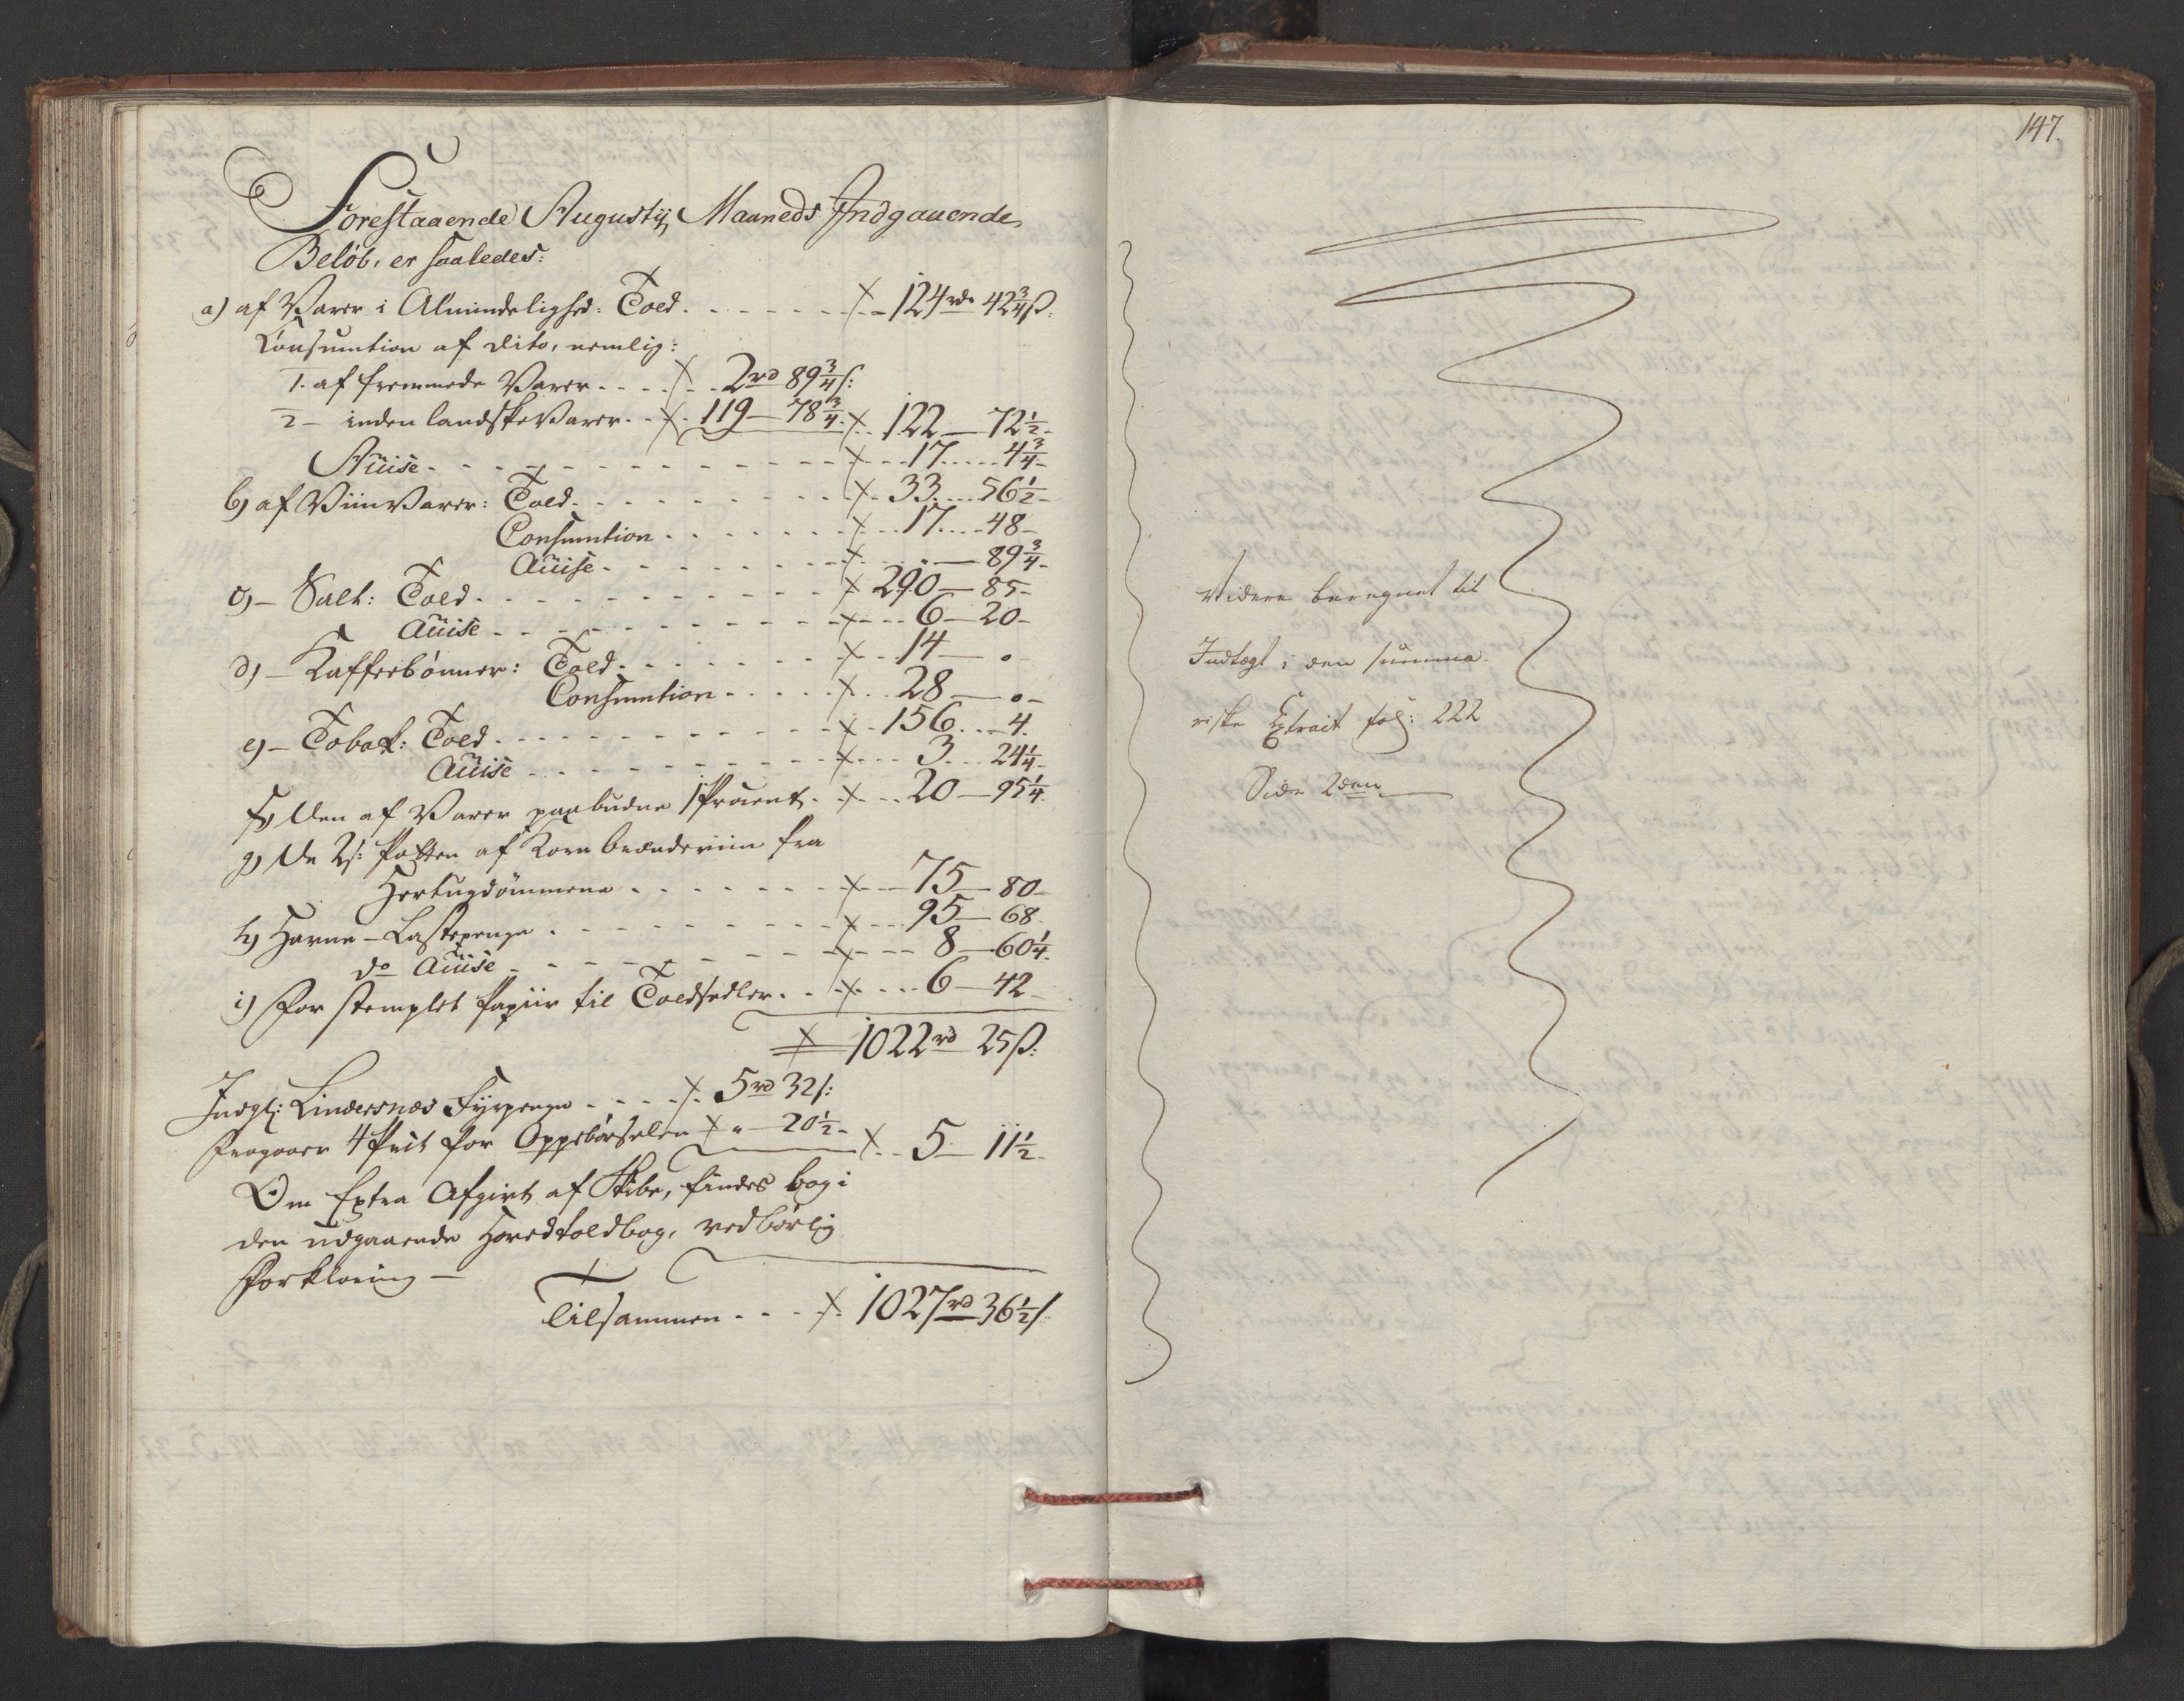 Forestaaende Augustij Maaneds Indgaaende
Beløb, er saaledes:
a) af Varer i Almindelighed: Told . . . . . . . 124 rd 42 3/4 ß:
Consumtion af dito, nemlig:
1. af fremmede Varer . . . . 2 rd 89 3/4 ß:
2 — indenlandske Varer . . 119 — 78 3/4 . . 122 — 72 1/2 -
Accise . . . . . . . . . . . 17 . . . . 4 3/4 -
b) af Viin Varer: Told . . . . . . . . 33 . . . 56 1/2 -
Consumtion . . . . . . . . 17 . . . . 48 -
Accise . . . . . . . . . „ — 89 3/4 -
c) — Salt: Told . . . . . . . . . . . 290 — 85 -
Accise . . . . . . . . . . . 6 — 20 -
d) — Kaffeebønner: Told . . . . . . . 14 — „
Consumtion . . . . . . . 28 — „ -
e) — Tobak: Told . . . . . . . . . . . 156 . . . 4.
Accise . . . . . . . . . . . 3 . . . 24 1/4 -
f) Den af Varer paabudne 1 Procent . . . . 20 — 95 1/4.
g) De 2 ß: Potten af Korn brændeviin fra
Hertugdømmene . . . . . . . . 75 — 80 -
h) Havne-Lastepenge . . . . . . . . . . 95 — 68.
do Accise . . . . . . . . . . 8 — 60 1/4.
i) For stemplet Papiir til Toldsedler . . . . . 6 — 42 -
1022 rd 25 ß:
Indgl: Lindesnæs Fyrpenge . . . . . 5 rd 32 ß:
fragaaer 4 Prct for Oppebørselen „ — 20 1/2 - . . 5 — 11 1/2 -
Om Extra Afgivt af Skibe, findes bag i
den udgaaende Hovedtoldbog, vedbørlig
Forklaring —
Tilsammen . . . . 1027 rd 36 1/2 ß
147.
Videre beregnet til
Indtægt i den summa-
riske Extrait fol: 222
Side 2den